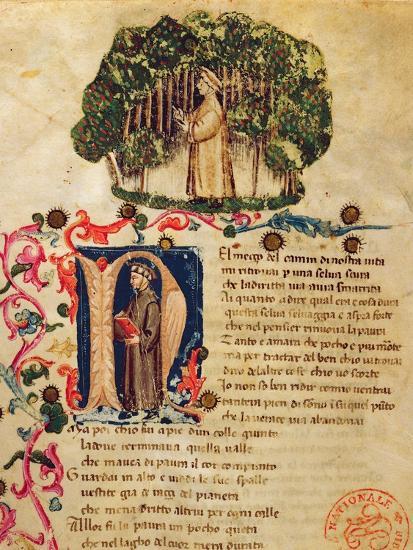 El meço del camin di nostra vita
mi ritrovai p una selva scura
che la diritta via avia smarita
Ai quanto a dire qual era e cosa dura
questa selva selvaggia e aspra e forte
che nel pensier rinnova la paura
Tanto e amara che pocho e piu morte
ma per tractar del ben chio vi trovai
diro dellaltre cose chio vo scorte
Io non so ben ridir comio ventrai
tantera pien di sonno i su quel pũto
che la verace via abandonai
Ma poi chio fui a pie dun colle giunto
la dove terminava quella valle
che mavea di paura il cor compunto
Guardai in alto e vidi le sue spalle
vestite gia de raggi del pianeta
che mena dritto altrui per ogni calle
Allor fu la paura un pocho queta
che nel lagho del cuor mera durata
NATIONALE